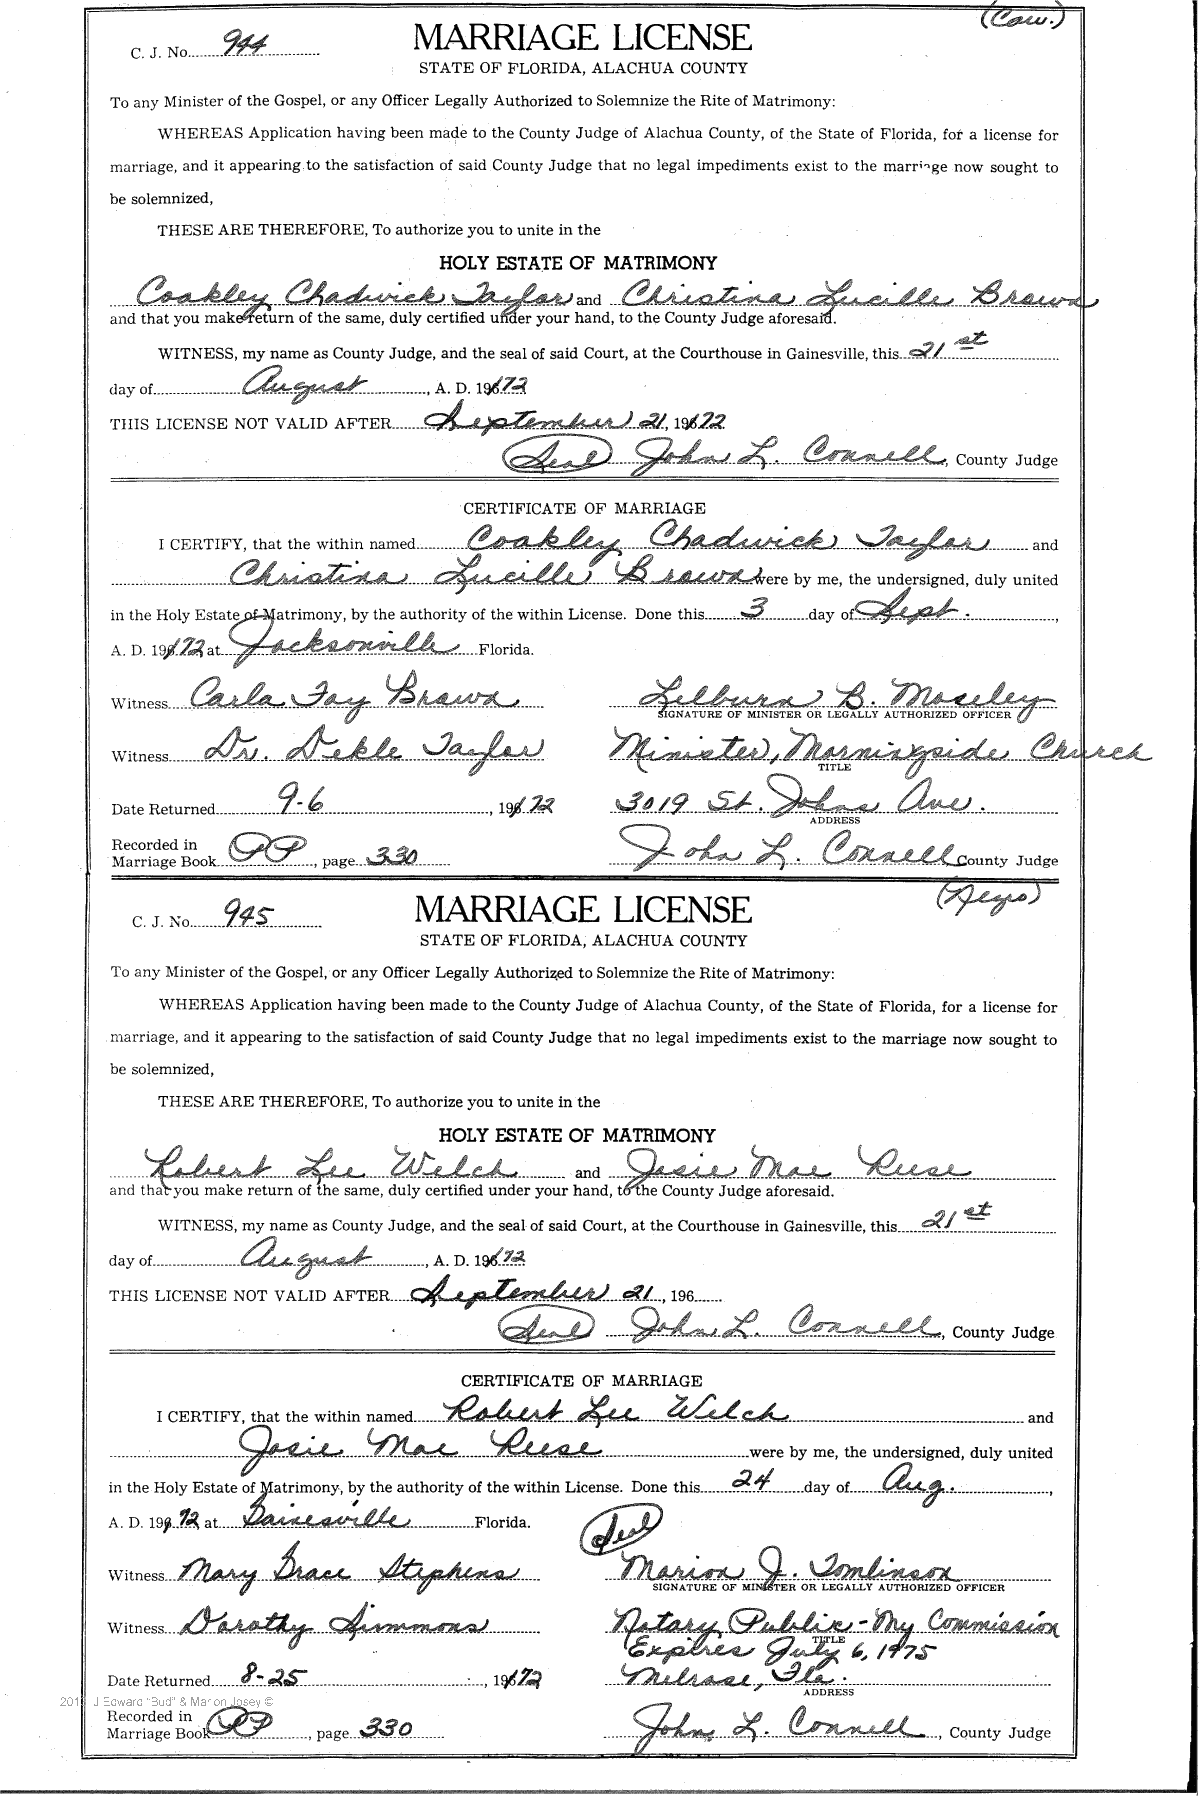 (Cau.)
C. J. No. 944 MARRIAGE LICENSE
STATE OF FLORIDA, ALACHUA COUNTY
To any Minister of the Gospel, or any Officer Legally Authorized to Solemnize the Rite of Matrimony:
WHEREAS Application having been made to the County Judge of Alachua County, of the State of Florida, for a license for
marriage, and it appearing to the satisfaction of said County Judge that no legal impediments exist to the marriage now sought to
be solemnized,
THESE ARE THEREFORE, To authorize you to unite in the
HOLY ESTATE OF MATRIMONY
Coakley Chadwick Taylor and Christina Lucille Brown
and that you make return of the same, duly certified under your hand, to the County Judge aforesaid.
WITNESS, my name as County Judge, and the seal of said Court, at the Courthouse in Gainesville, this 21st
day of August, A. D. 1972
THIS LICENSE NOT VALID AFTER September 21, 1972
(Seal) John L. Connell, County Judge
CERTIFICATE OF MARRIAGE
I CERTIFY, that the within named Coakley Chadwick Taylor and
Christina Lucille Brown were by me, the undersigned, duly united
in the Holy Estate of Matrimony, by the authority of the within License. Done this 3 day of Sept.,
A. D. 1972 at Jacksonville Florida.
Witness Carla Fay Brown Lilburn B. Moseley
SIGNATURE OF MINISTER OR LEGALLY AUTHORIZED OFFICER
Witness Dr. Dekle Taylor Minister, Morningside Church
TITLE
Date Returned 9-6, 1972 3019 St. Johns Ave.
ADDRESS
Recorded in
Marriage Book PP, page 330 John L. Connell County Judge
(Negro)
C. J. No. 945 MARRIAGE LICENSE
STATE OF FLORIDA, ALACHUA COUNTY
To any Minister of the Gospel, or any Officer Legally Authorized to Solemnize the Rite of Matrimony:
WHEREAS Application having been made to the County Judge of Alachua County, of the State of Florida, for a license for
marriage, and it appearing to the satisfaction of said County Judge that no legal impediments exist to the marriage now sought to
be solemnized,
THESE ARE THEREFORE, To authorize you to unite in the
HOLY ESTATE OF MATRIMONY
Robert Lee Welch and Josie Mae Reese
and that you make return of the same, duly certified under your hand, to the County Judge aforesaid.
WITNESS, my name as County Judge, and the seal of said Court, at the Courthouse in Gainesville, this 21st
day of August, A. D. 1972
THIS LICENSE NOT VALID AFTER September 21, 196
(Seal) John L. Connell, County Judge
CERTIFICATE OF MARRIAGE
I CERTIFY, that the within named Robert Lee Welch and
Josie Mae Reese were by me, the undersigned, duly united
in the Holy Estate of Matrimony, by the authority of the within License. Done this 24 day of Aug.,
A. D. 1972 at Gainesville Florida. (Seal)
Witness Mary Grace Stephens Marion J. Tomlinson
SIGNATURE OF MINISTER OR LEGALLY AUTHORIZED OFFICER
Witness Dorothy Simmons Notary Public - My Commission
TITLE
Expires July 6, 1975
Date Returned 8-25, 1972 Melrose, Fla.
ADDRESS
J Edward "Bud" & Marion Josey ©
Recorded in
Marriage Book PP, page 330 John L. Connell, County Judge